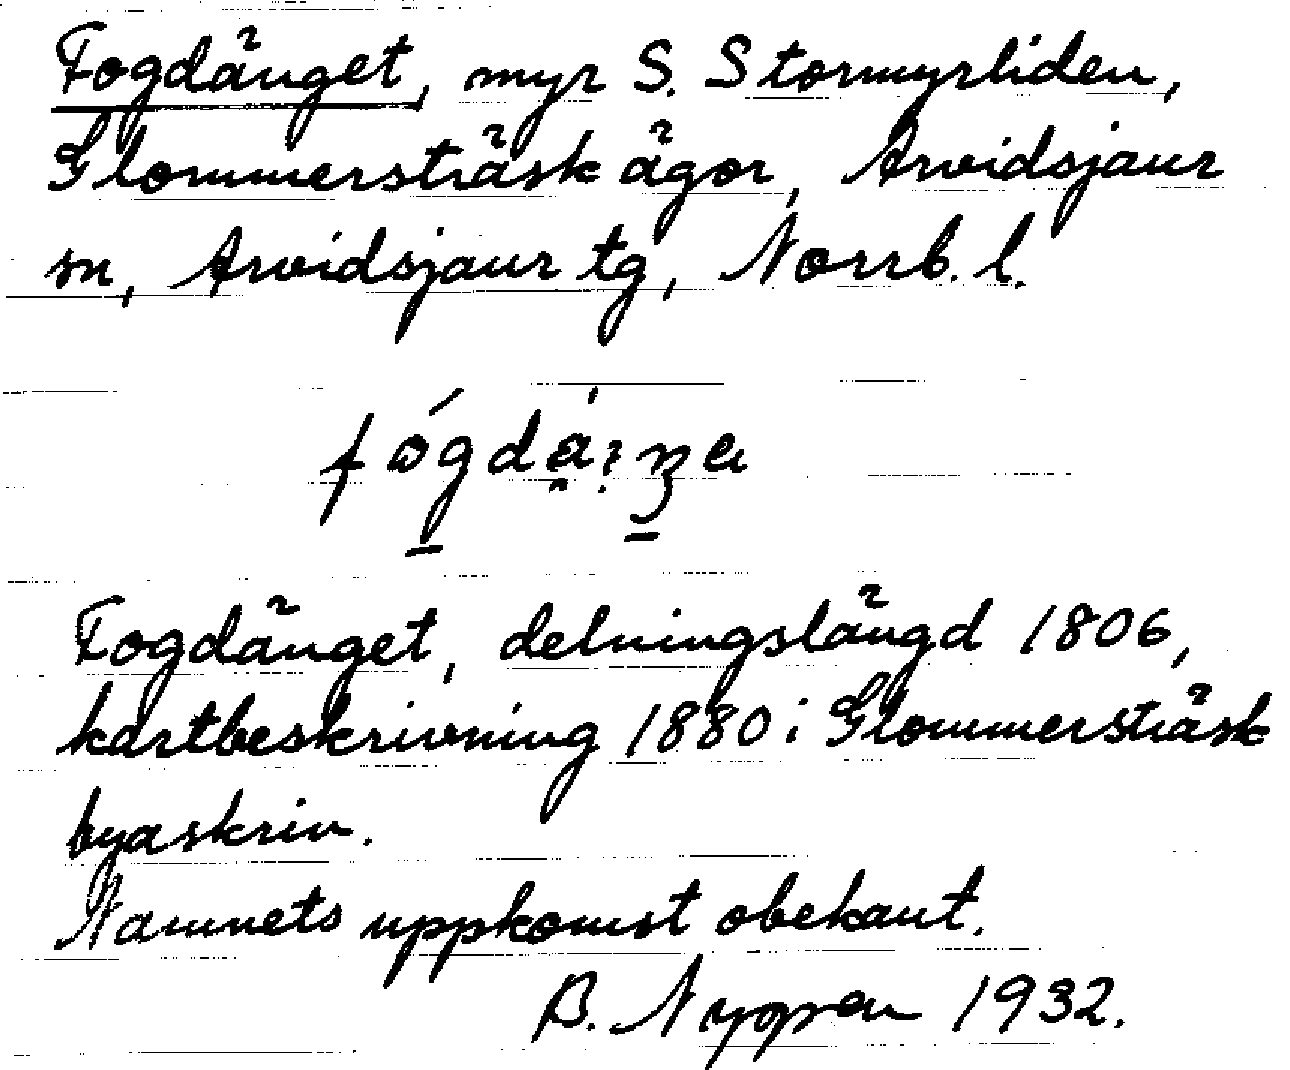 Fogdänget, myr S. Stormyrliden,
Glommersträsk ägor, Arvidsjaur
sn, Arvidsjaur tg, Norrb. l.
Fogdänget, delningslängd 1806,
kartbeskrivning 1880 i Glommersträsk
byaskriv.
Namnets uppkomst obekant.
B. 1932.